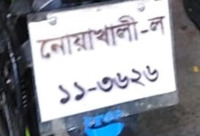 নোয়াখালী-ল
১১-৩৬২৬